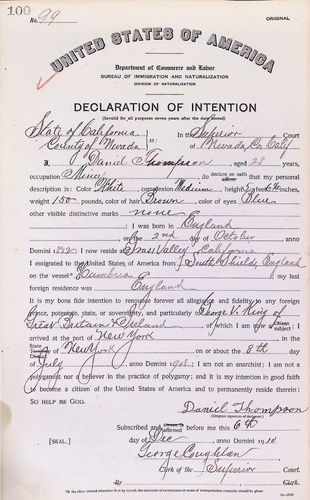 100
No. 99
ORIGINAL
UNITED STATES OF AMERICA
Department of Commerce and Labor
BUREAU OF IMMIGRATION AND NATURALIZATION
DIVISION OF NATURALIZATION
DECLARATION OF INTENTION
(Invalid for all purposes seven years after the date hereof)
State of California
County of Nevada ss: In the Superior Court of Nevada Co. Calif
I, Daniel Thompson, aged 28 years,
occupation Miner, do declare on oath affirm that my personal
description is: Color White, complexion Medium, height 5 feet 6½ inches,
weight 150 pounds, color of hair Brown, color of eyes Blue
other visible distinctive marks none
I was born in England
on the 2nd day of October, anno
Domini 1882; I now reside at Grass Valley, California
I emigrated to the United States of America from South Shields, England
on the vessel Umbria; my last
foreign residence was England
It is my bona fide intention to renounce forever all allegiance and fidelity to any foreign
prince, potentate, state, or sovereignty, and particularly to George V. King of
Great Britain & Ireland, of which I am now a citizen subject; I
arrived at the port of New York, in the
State Territory District of New York on or about the 8th day
of July, anno Domini 1908; I am not an anarchist; I am not a
polygamist nor a believer in the practice of polygamy; and it is my intention in good faith
to become a citizen of the United States of America and to permanently reside therein:
SO HELP ME GOD.
Daniel Thompson
(Original signature of declarant.)
Subscribed and sworn to affirmed before me this 6th
[SEAL.] day of Dec, anno Domini 1910.
George Coughlan
Clerk of the Superior Court.
By, Clerk.